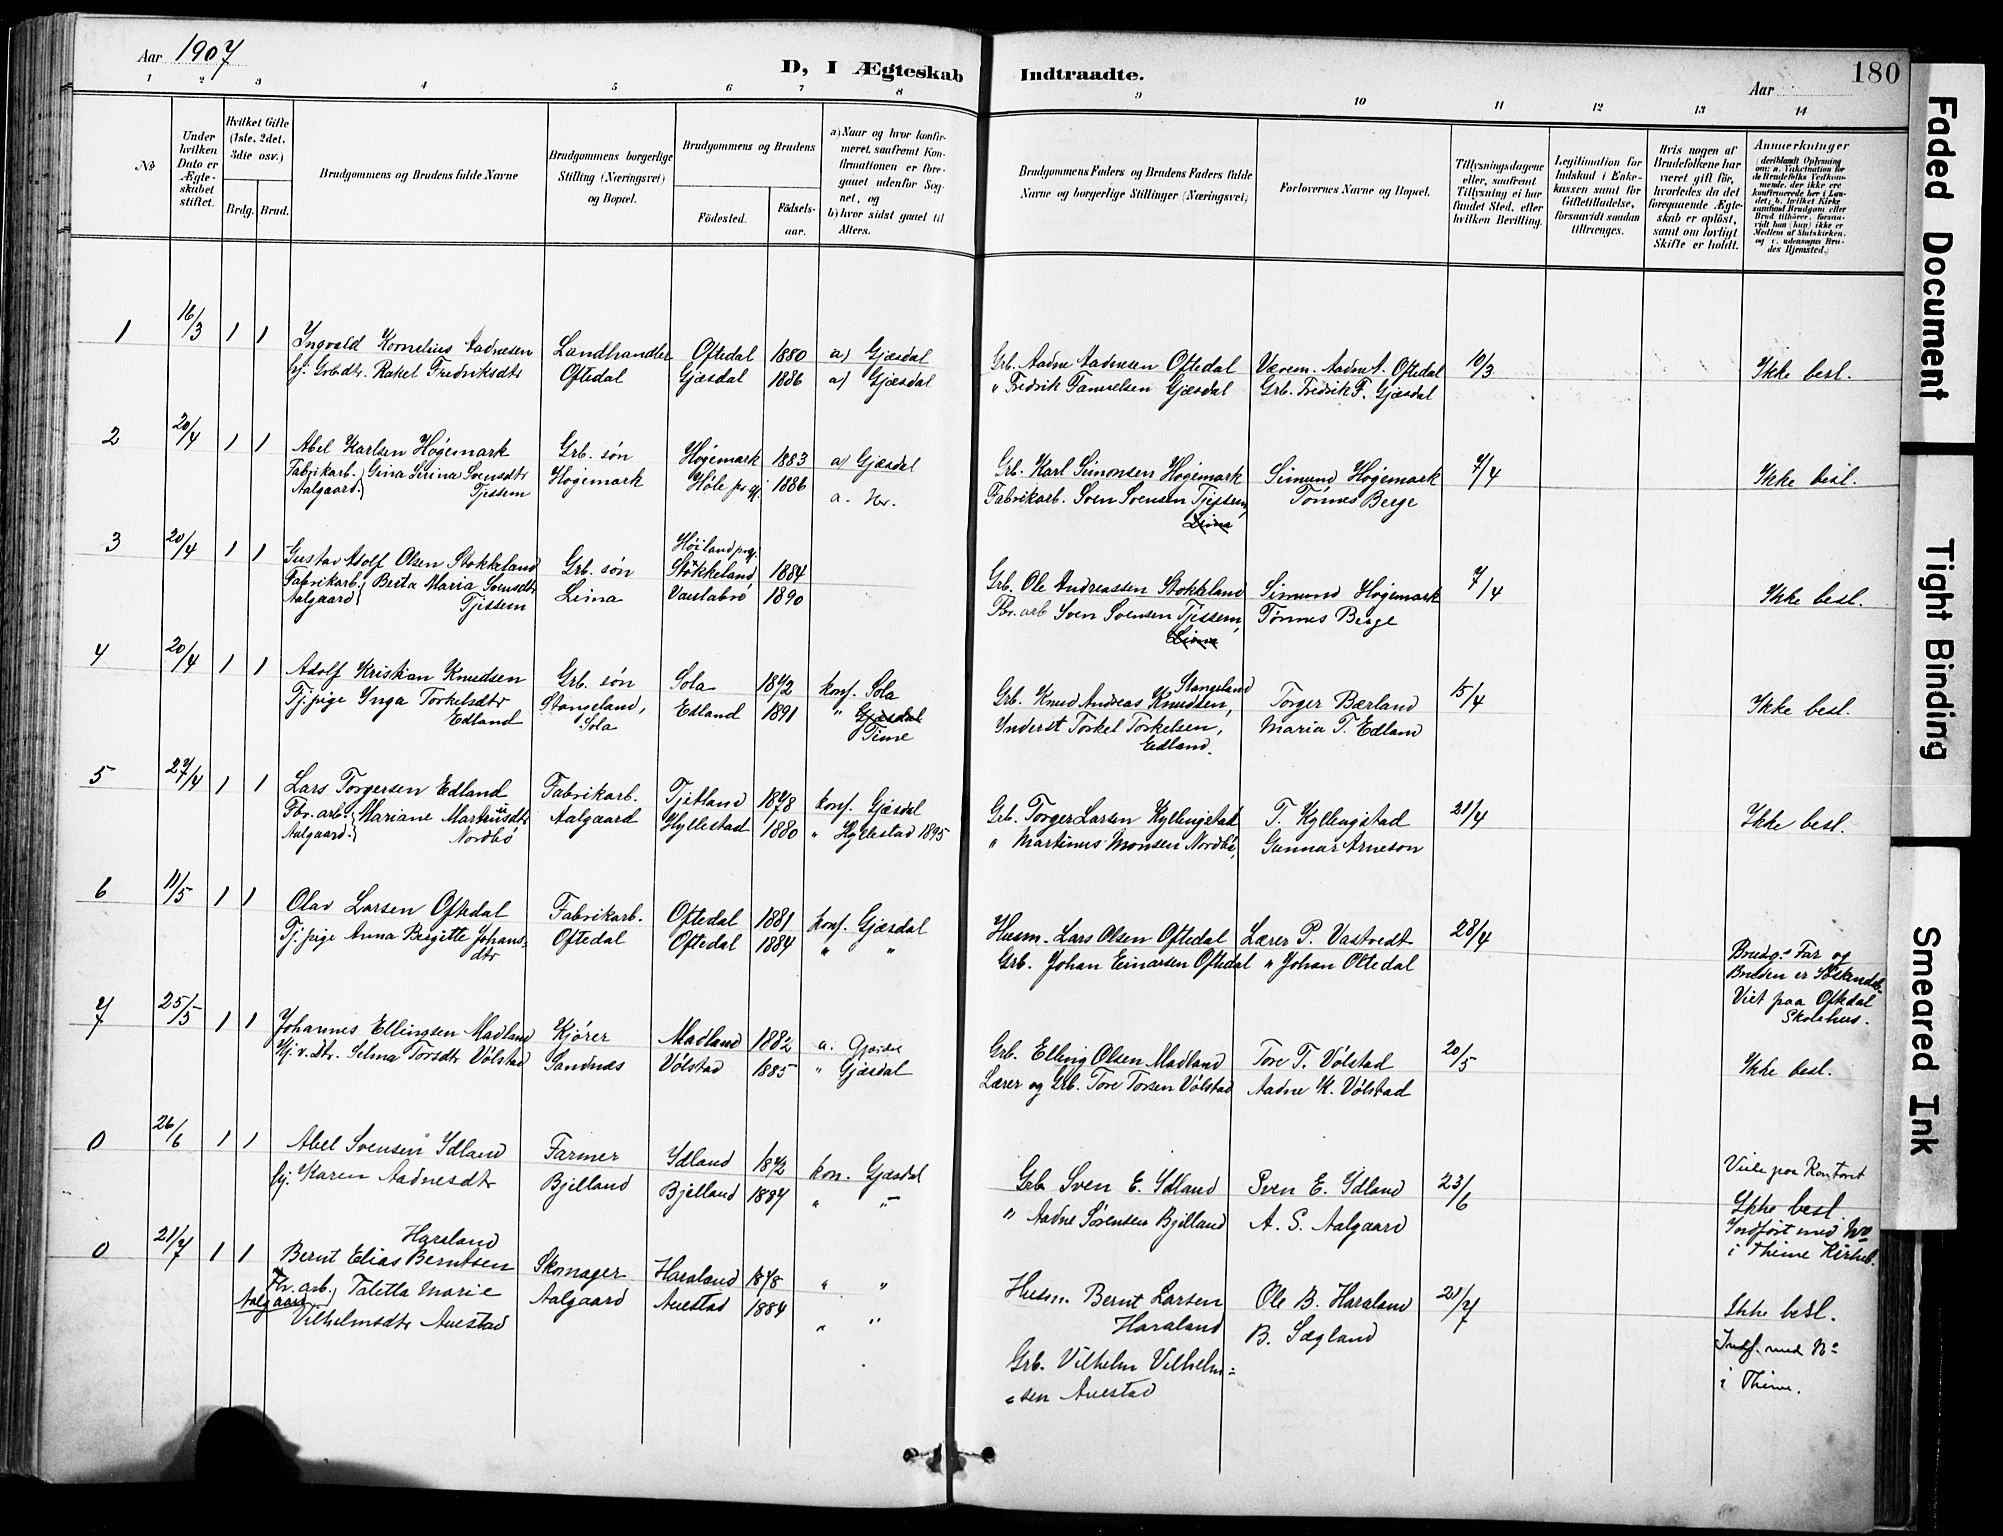 Aar 1907
D, I Ægteskab Indtraadte.
Aar
180
1 2 3 4 5 6 7 8 9 10 11 12 13 14
No
Under hvilken Dato er Ægteskabet stiftet.
Hvilket Gifte (1ste, 2det, 3die osv.)
Brdg. Brud.
Brudgommens og Brudens fulde Navne
Brudgommens borgerlige Stilling (Næringsvei) og Bopæl.
Brudgommens og Brudens
Födested.
Födselsaar.
a) Naar og hvor konfirmeret, saafremt Konfirmationen er foregaaet udenfor Sognet, og
b) hvor sidst gaaet til Alters.
Brudgommens Faders og Brudens Faders fulde Navne og borgerlige Stillinger (Næringsvei)
Forlovernes Navne og Bopæl.
Tillysningsdagene eller, saafremt Tillysning ei har fundet Sted, efter hvilken Bevilling.
Legitimation for Indskud i Enkekassen samt for Giftetilladelse, forsaavidt saadan tiltrænges.
Hvis nogen af Brudefolkene har været gift för, hvorledes da det foregaaende Ægteskab er oplöst, samt om lovligt Skifte er holdt.
Anmærkninger
(deriblandt Oplysning om: a. Vakcination for de Brudefolks Vedkommende, der ikke ere konfirmerede her i Landet; b. hvilket Kirkesamfund Brudgom eller Brud tilhörer, forsaavidt han (hun) ikke er Medlem af Statskirken, og c. udensogns Brudes Hjemsted.)
1 16/3 1 1 Ingvald Kornelius Aadnesen Landhandler Oftedal 1880 a) Gjæsdal Grb. Aadne Aadnesen Oftedal Værem. Aadne A. Oftedal 10/3 Ikke besl.
hj. Grbdtr. Rakel Fredriksdtr Oftedal Gjæsdal 1886 a) Gjæsdal " Fredrik Gjæsdal Grb. Fredrik F. Gjæsdal
2 20/4 1 1 Abel Karlsen Høgemark Grb. søn Høgemark 1883 a) Gjæsdal Grb. Karl Simonsen Høgemark Simund Høgemark 7/4 Ikke besl.
Fabrikarb. Aalgaard } Gina Serina Svensdtr Tjessem Høgemark Høle 1886 a. Fabrikarb. Sven Svensen Tjessem, Lima Tønnes Berge
3 20/4 1 1 Gustav Adolf Olsen Stokkeland Grb. søn Høiland prgj. Stokkeland 1884 Grb. Ole Andreassen Stokkeland Simund Høgemark 7/4 Ikke besl.
Fabrikarb. Aalgaard } Berta Maria Svensdtr Tjessem Lima 1890 Fbr. arb Sven Svensen Tjessem, Lima Tønnes Berge
4 20/4 1 1 Adolf Kristian Knudsen Grb. søn Sola 1872 konf. Sola Grb. Knud Andreas Knudsen, Stangeland Torger Bærland 15/4 Ikke besl.
Tj. pige Inga Torkelsdtr Edland Stangeland, Sola Edland 1891 " Gjæsdal Time Inderst Torkel Torkelsen, Edland. Maria T. Edland
5 27/4 1 1 Lars Torgersen Edland Fabrikarb. Tjetland 1878 konf. Gjæsdal Grb. Torger Larsen Kyllingstad T. Kyllingstad 21/4 Ikke besl.
Fbr. arb. Aalgaard. } Mariane Martinusdtr Nordbø Aalgaard Hyllestad 1880 " Hyllestad 1895 " Martinus Monsen Nordbø, Gunnar Arneson
6 11/5 1 1 Olav Larsen Oftedal Fabrikarb. Oftedal 1881 konf. Gjæsdal Husm. Lars Olsen Oftedal Lærer P. Vastvedt 28/4 Brudg.s Far og Bruden er Søskendeb.
Tj. pige Anna Brigitte Johansdtr Oftedal Oftedal 1884 " " Grb. Johan Einarsen Oftedal " Johan Oltedal Viet paa Oftedal Skolehus.
7 25/5 1 1 Johannes Ellingsen Madland Kjører Madland 1882 a. Grb. Elling Olsen Madland Tore T. Vølstad 20/5 Ikke besl.
Hj. v. dtr. Selma Torsdtr Vølstad Sandnæs Vølstad 1885 " Gjæsdal Lærer og Grb. Tore Torsen Vølstad Aadne K. Vølstad
0 26/6 1 1 Abel Svensen Idland Farmer Idland 1872 kon. Gjæsdal Grb Sven E. Idland Sven E. Idland 23/6 Viele paa Kontoret
hj. Karen Aadnesdtr Bjelland Bjelland 1884 " " " Aadne Sørensen Bjelland A. S. Aalgaard Ikke besl. Indført med No i Thime Kirkeb.
0 21/7 1 1 Bernt Elias Berntsen Haraland Skomager Haraland 1878 " " Husm. Bernt Larsen Haraland Ole B. Haraland 21/7 Ikke besl.
Fbr. arb. Aalgaard } Taletta Marie Vilhelmsdtr Auestad Aalgaard Auestad 1884 " " Grb. Vilhelm Vilhelmsen Auestad B. Sægland Indf. med No i Thime.
Faded Document
Tight Binding
Smeared Ink